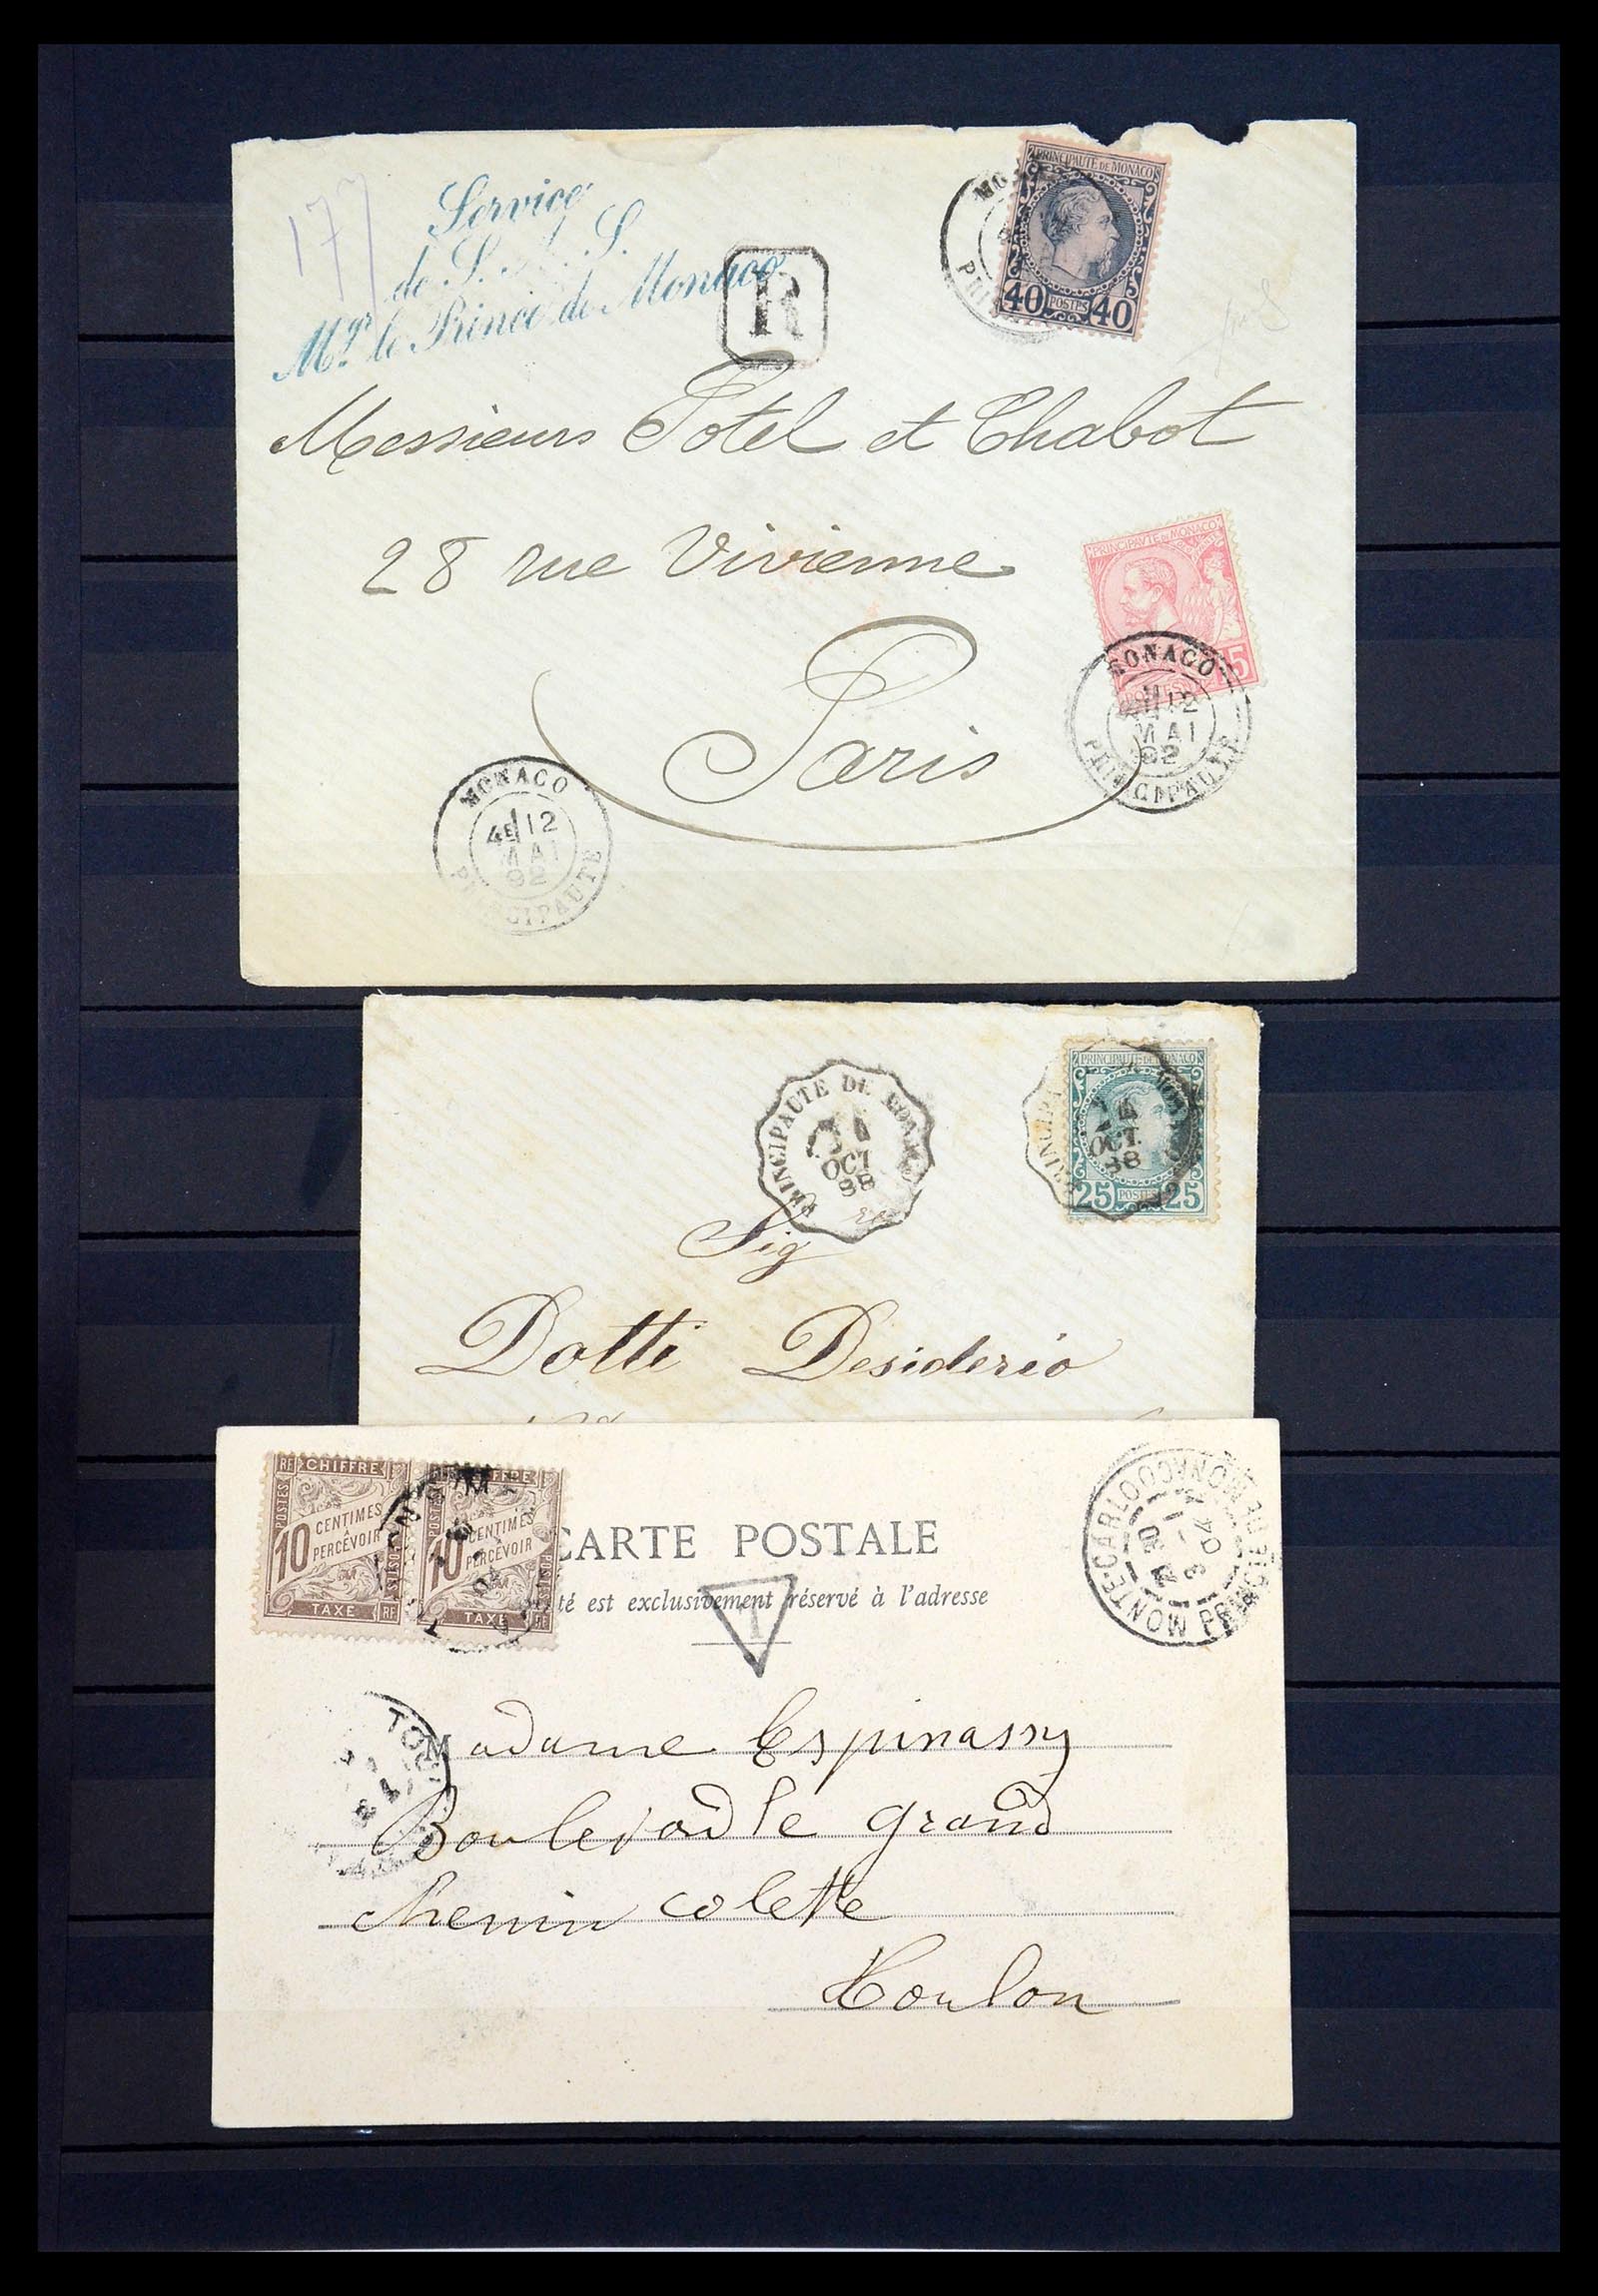 177
Service
de S. A. S.
Mgr. le Prince de Monaco
R
MONACO
PRINCIPAUTÉ DE MONACO
40 POSTES 40
Messieurs Potel et Chabot
28 rue Vivienne
Paris
PRINCIPAUTE DE MONACO
15
MONACO
12
MAI
92
PRINCIPAUTE
MONACO
4E 12
MAI
92
PRINCIPAUTE
PRINCIPAUTE DE MONACO
OCT
88
PRINCIPAUTÉ DE MONACO
OCT
88
25 POSTES 25
Sig
Dotti Desiderio
RF CHIFFRE
POSTES
10 CENTIMES
À
PERCEVOIR
POSTES
TAXE RF
CHIFFRE
10 CENTIMES
À
PERCEVOIR
POSTES
TAXE RF
CARTE POSTALE
té est exclusivement réservé à l'adresse
T
MONTE-CARLO
04
Madame Espinassy
Boulevard le grand
chemin colette
Toulon